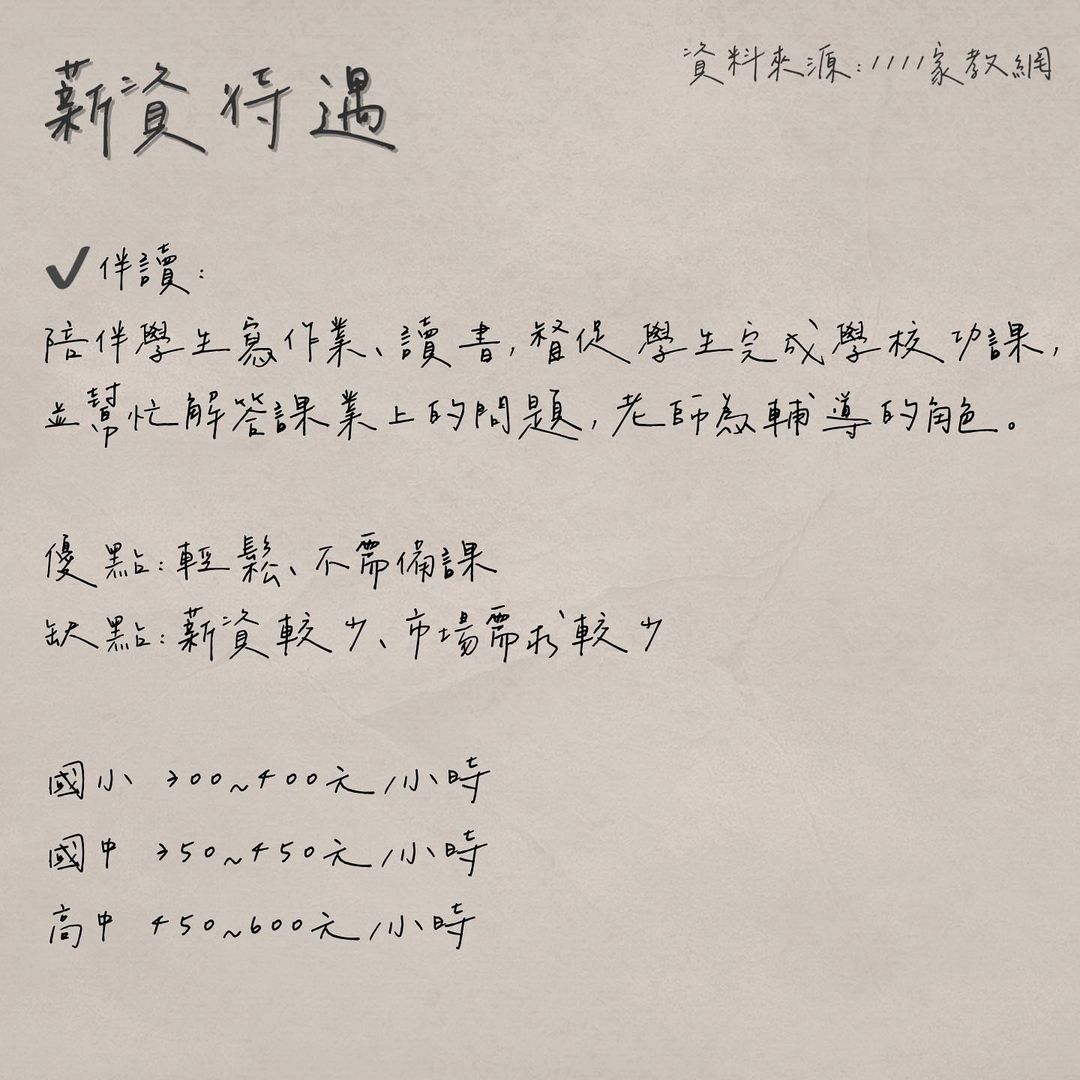 薪資待遇
資料來源:1111家教網
✓伴讀:
陪伴學生寫作業、讀書,督促學生完成學校功課,
並幫忙解答課業上的問題,老師為輔導的角色。
優點:輕鬆、不需備課
缺點:薪資較少、市場需求較少
國小 300~400元/小時
國中 350~450元/小時
高中 450~600元/小時